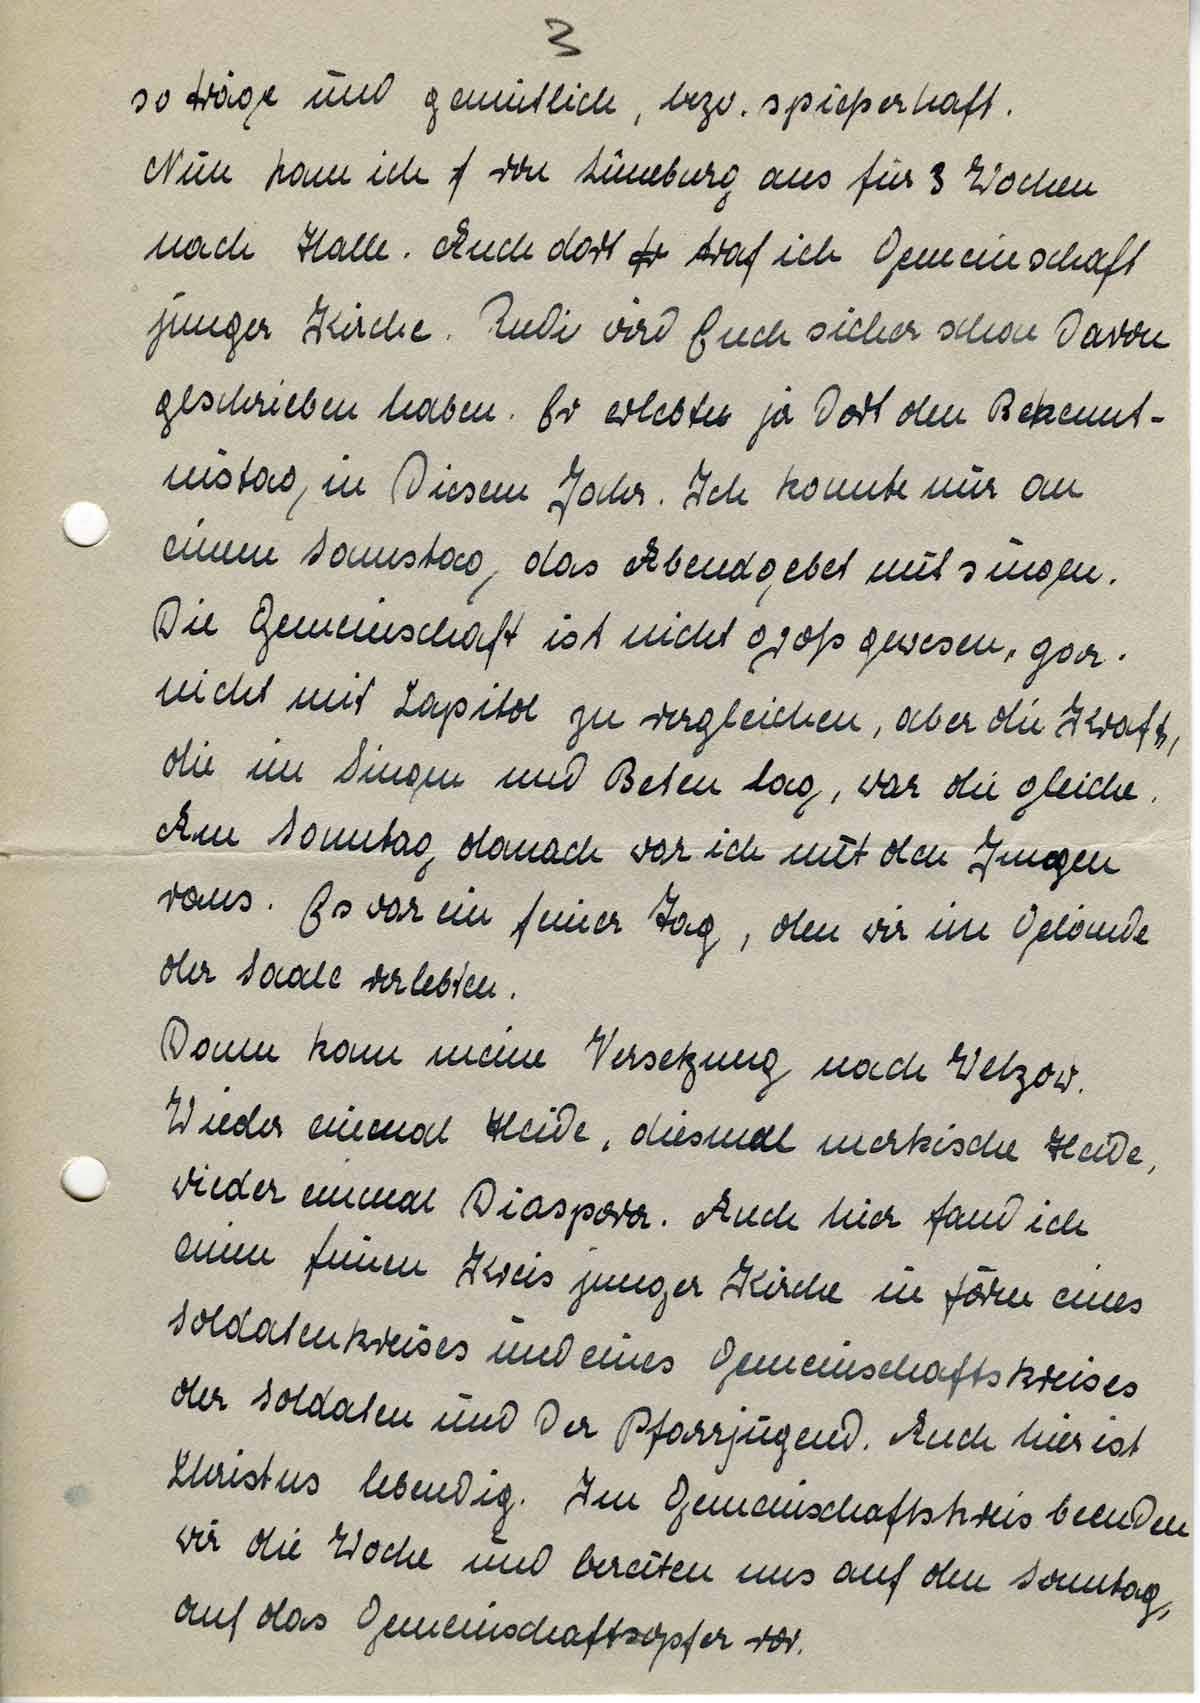 3
so träge und gemütlich, bzw. spießerhaft.
Nun kam ich von Lüneburg aus für 3 Wochen
nach Halle. Auch dort traf ich Gemeinschaft
junger Kirche. Rudi wird Euch sicher schon davon
geschrieben haben. Er erlebte ja dort den Bekennt-
nistag in diesem Jahr. Ich konnte nur an
einem Samstag das Abendgebet mitsingen.
Die Gemeinschaft ist nicht groß gewesen, gar
nicht mit Capitol zu vergleichen, aber die Kraft,
die im Singen und Beten lag, war die gleiche.
Am Sonntag danach war ich mit den Jungen
raus. Es war ein feiner Tag, den wir im Gelände
der Saale verlebten.
Dann kam meine Versetzung nach Welzow.
Wieder einmal Heide, diesmal merkische Heide,
wieder einmal Diaspora. Auch hier fand ich
einen feinen Kreis junger Kirche in Form eines
Soldatenkreises und eines Gemeinschaftskreises
der Soldaten und der Pfarrjugend. Auch hier ist
Christus lebendig. Im Gemeinschaftskreis beenden
wir die Woche und bereiten uns auf den Sonntag,
auf das Gemeinschaftsopfer vor.